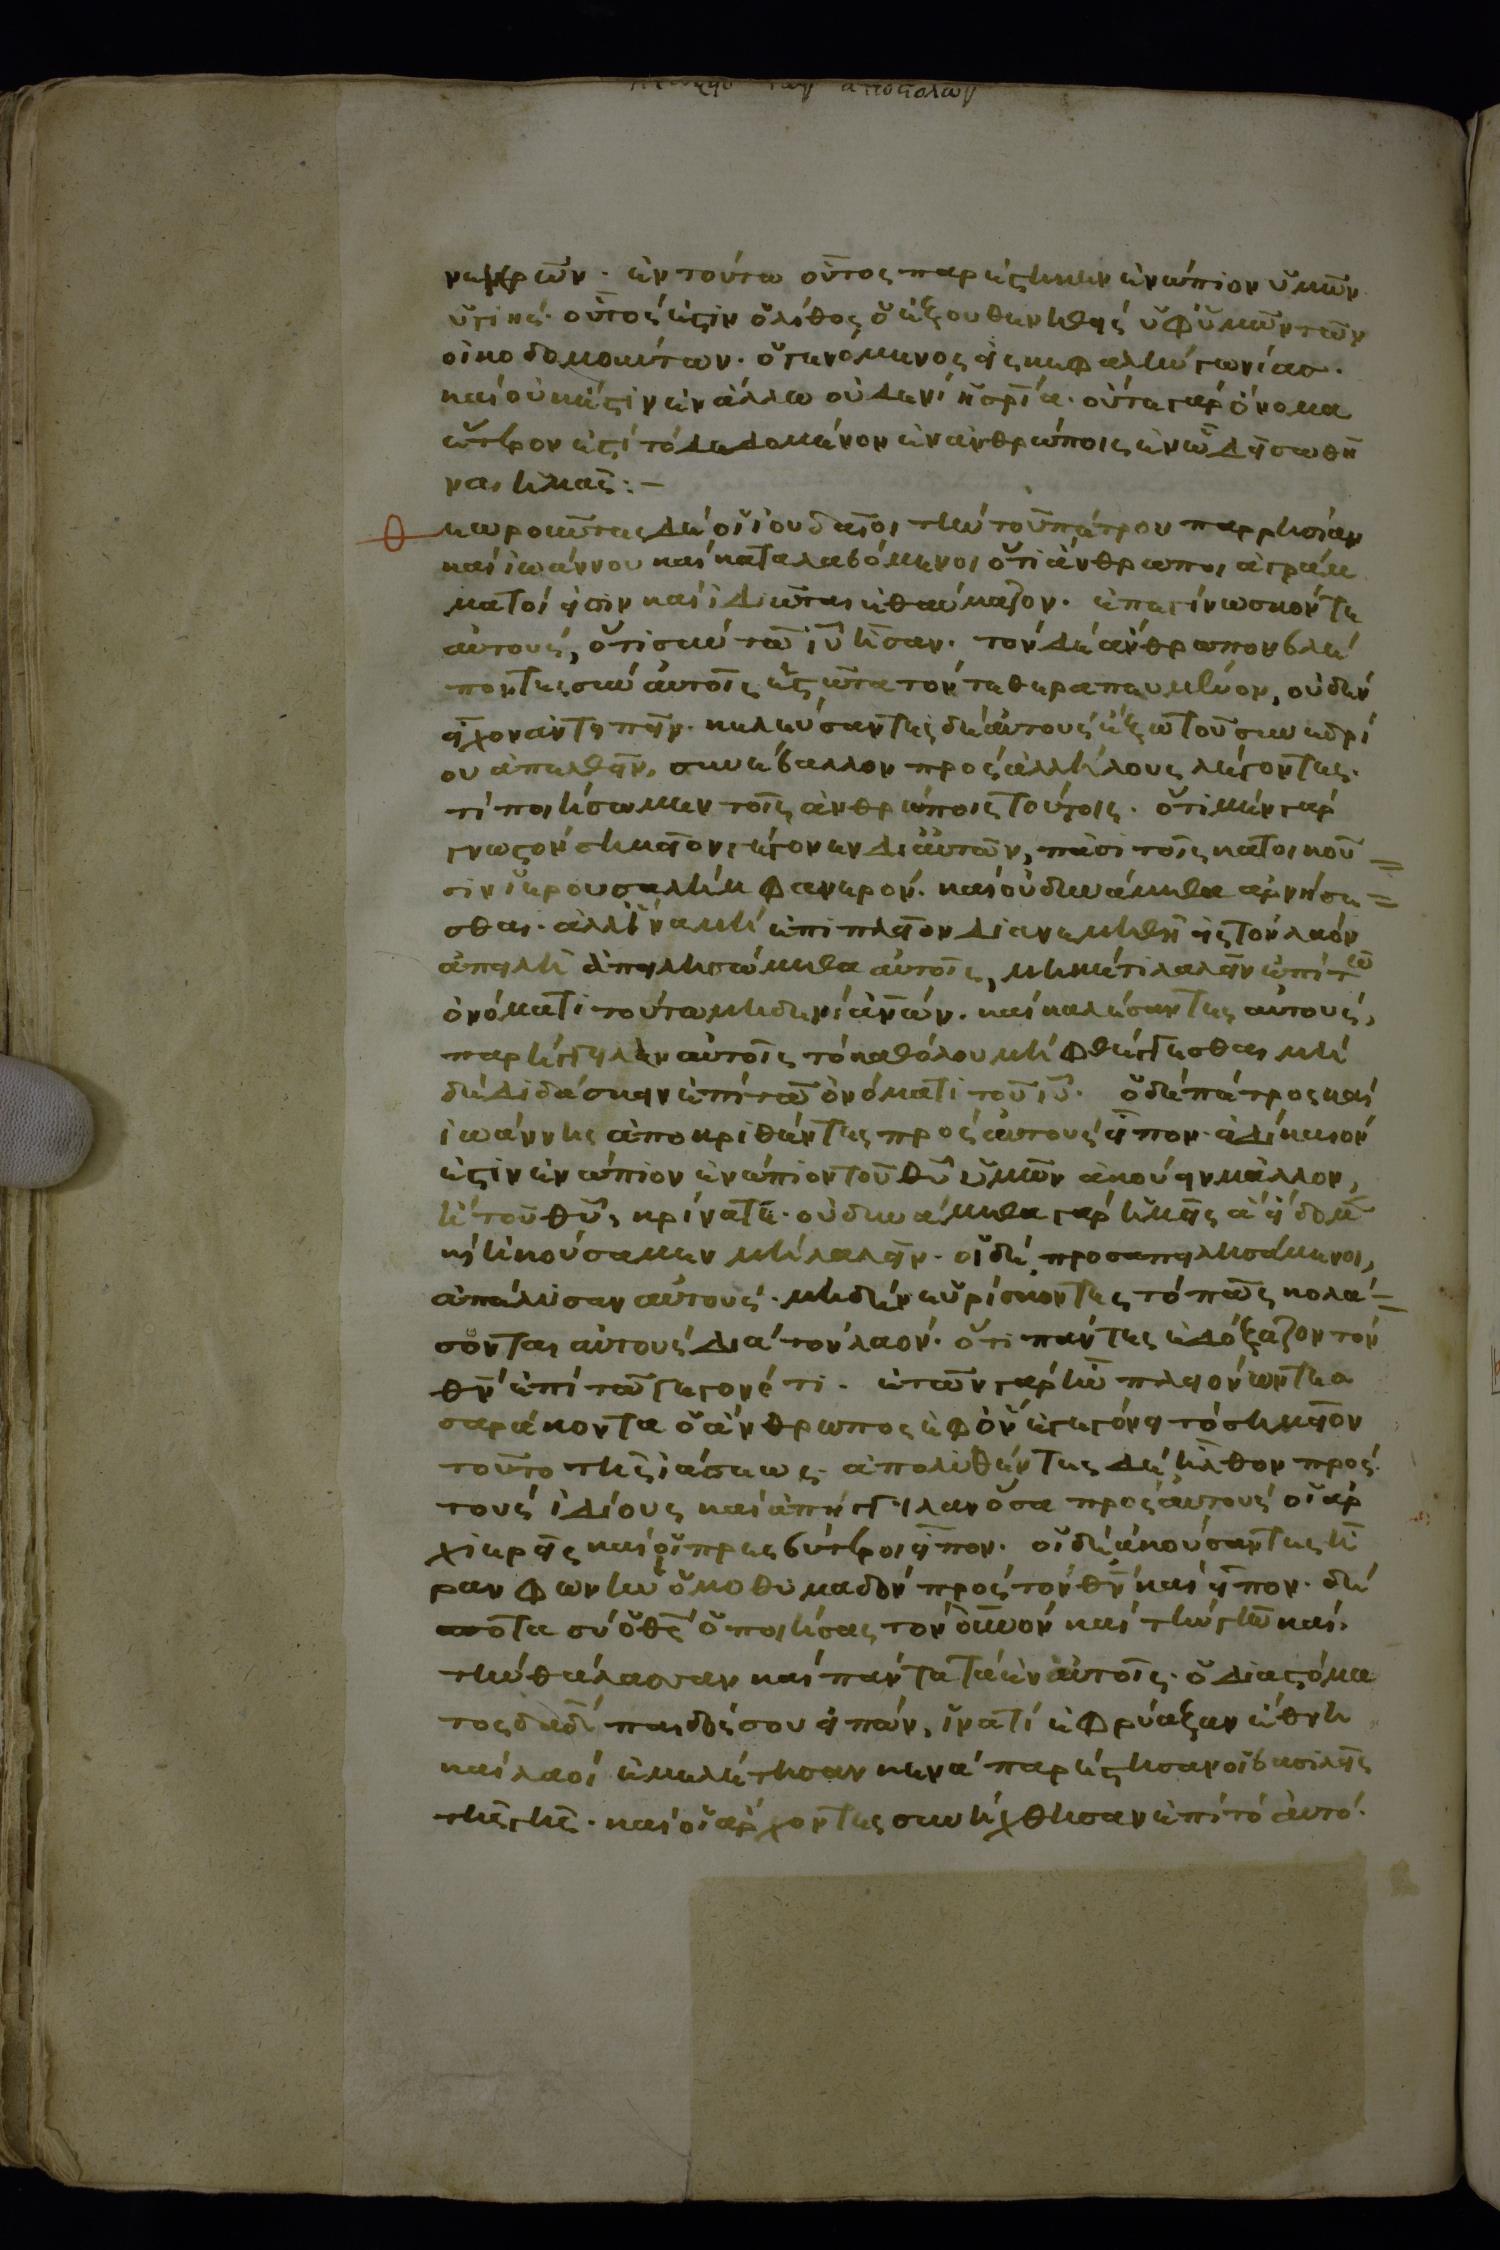 τῶν ἀποστόλων
νεκρῶν· ἐν τούτω οὗτος παρέστηκεν ἐνώπιον ὑμῶν
ὑγιής· οὗτός ἐστιν ὁ λίθος ὁ ἐξουθενηθείς ὑφ ὑμῶν τῶν
οἰκοδομούντων· ὁ γενόμενος εἰς κεφαλήν γωνίας·
καί οὐκ ἔστιν ἐν ἄλλω οὐδενί ἡ σρία· οὔτε γάρ ὄνομα
ἕτερον ἐστί τό δεδομένον ἐν ἀνθρώποις ἐν ὧ δεῖ σωθῆ
ναι ἡμᾶς:–
θεωροῦντες δέ οἱ ἰουδαῖοι τήν τοῦ πέτρου παρρησίαν
καί ἰωάννου καί καταλαβόμενοι ὅτι ἄνθρωποι ἀγράμ
ματοί εἰσιν καί ἰδιῶται ἐθαύμαζον· ἐπεγίνωσκόν τε
αὐτούς, ὅτι σύν τῶ ιυ ἦσαν· τόν δέ ἄνθρωπον βλέ
ποντες σύν αὐτοῖς ἑστῶτα τόν τεθεραπευμένον, οὐδέν
εἶχον ἀντειπεῖν· κελεύσαντες δέ αὐτούς ἔξω τοῦ συνεδρί
ου ἀπελθεῖν, συνέβαλλον πρός ἀλλήλους λέγοντες·
τί ποιήσωμεν τοῖς ἀνθρώποις τούτοις· ὅτι μέν γάρ
γνωστόν σημεῖον γέγονεν δι αὐτῶν, πᾶσι τοῖς κατοικοῦ
σιν ἱερουσαλήμ φανερόν· καί οὐ δυνάμεθα ἀρνήσα
σθαι· ἀλλ ἵνα μή ἐπί πλεῖον διανεμηθῆ εἰς τόν λαόν
ἀπειλῆ ἀπειλησώμεθα αὐτοῖς, μηκέτι λαλεῖν ἐπί τῶ
ὀνόματι τούτω μηδενί ἀνων· καί καλέσαντες αὐτούς,
παρήγγειλαν αὐτοῖς τό καθόλου μή φθέγγεσθαι μή
δέ διδάσκειν ἐπί τῶ ὀνόματι τοῦ ιυ· ὁ δέ πέτρος καί
ἰωάννης ἀποκριθέντες πρός αὐτούς εἶπον· εἰ δίκαιόν
ἐστιν ἐνώπιον ἐνώπιον τοῦ θυ ὑμῶν ἀκούειν μᾶλλον,
ἤ τοῦ θυ, κρίνατε· οὐ δυνάμεθα γάρ ἡμεῖς ἅ εἴδομ
κ ἠκούσαμεν μή λαλεῖν· οἱ δέ προσαπειλησάμενοι,
ἀπέλυσαν αὐτούς· μηδέν εὑρίσκοντες τό πῶς κολά
σονται αὐτούς διά τόν λαόν· ὅτι πάντες ἐδόξαζον τόν
θν ἐπί τῶ γεγονότι· ἐτῶν γάρ ἦν πλειόνων τεσ
σαράκοντα ὁ ἄνθρωπος ἐφ ὅν ἐγεγόνει τό σημεῖον
τοῦτο τῆς ἰάσεως· ἀπολυθέντες δέ ἦλθον πρός
τούς ἰδίους καί ἀπήγγειλαν ὅσα πρός αὐτούς οἱ ἀρ
χιερεῖς καί οἱ πρεσβύτεροι εἶπον· οἱ δέ ἀκούσαντες ἦ
ραν φωνήν ὁμοθυμαδόν πρός τόν θν καί εἶπον· δέ
σποτα σύ ὁ θς ὁ ποιήσας τόν οὐνόν καί τήν γῆν καί
τήν θάλασσαν καί πάντα τά ἐν αὐτοῖς· ὁ διά στόμα
τος δαδ παιδός σου εἰπών, ἱνατί ἐφρύαξαν ἔθνη
καί λαοί ἐμελέτησαν κενά παρέστησαν οἱ βασιλεῖς
τῆς γῆς· καί οἱ ἄρχοντες συνήχθησαν ἐπί τό αὐτό·